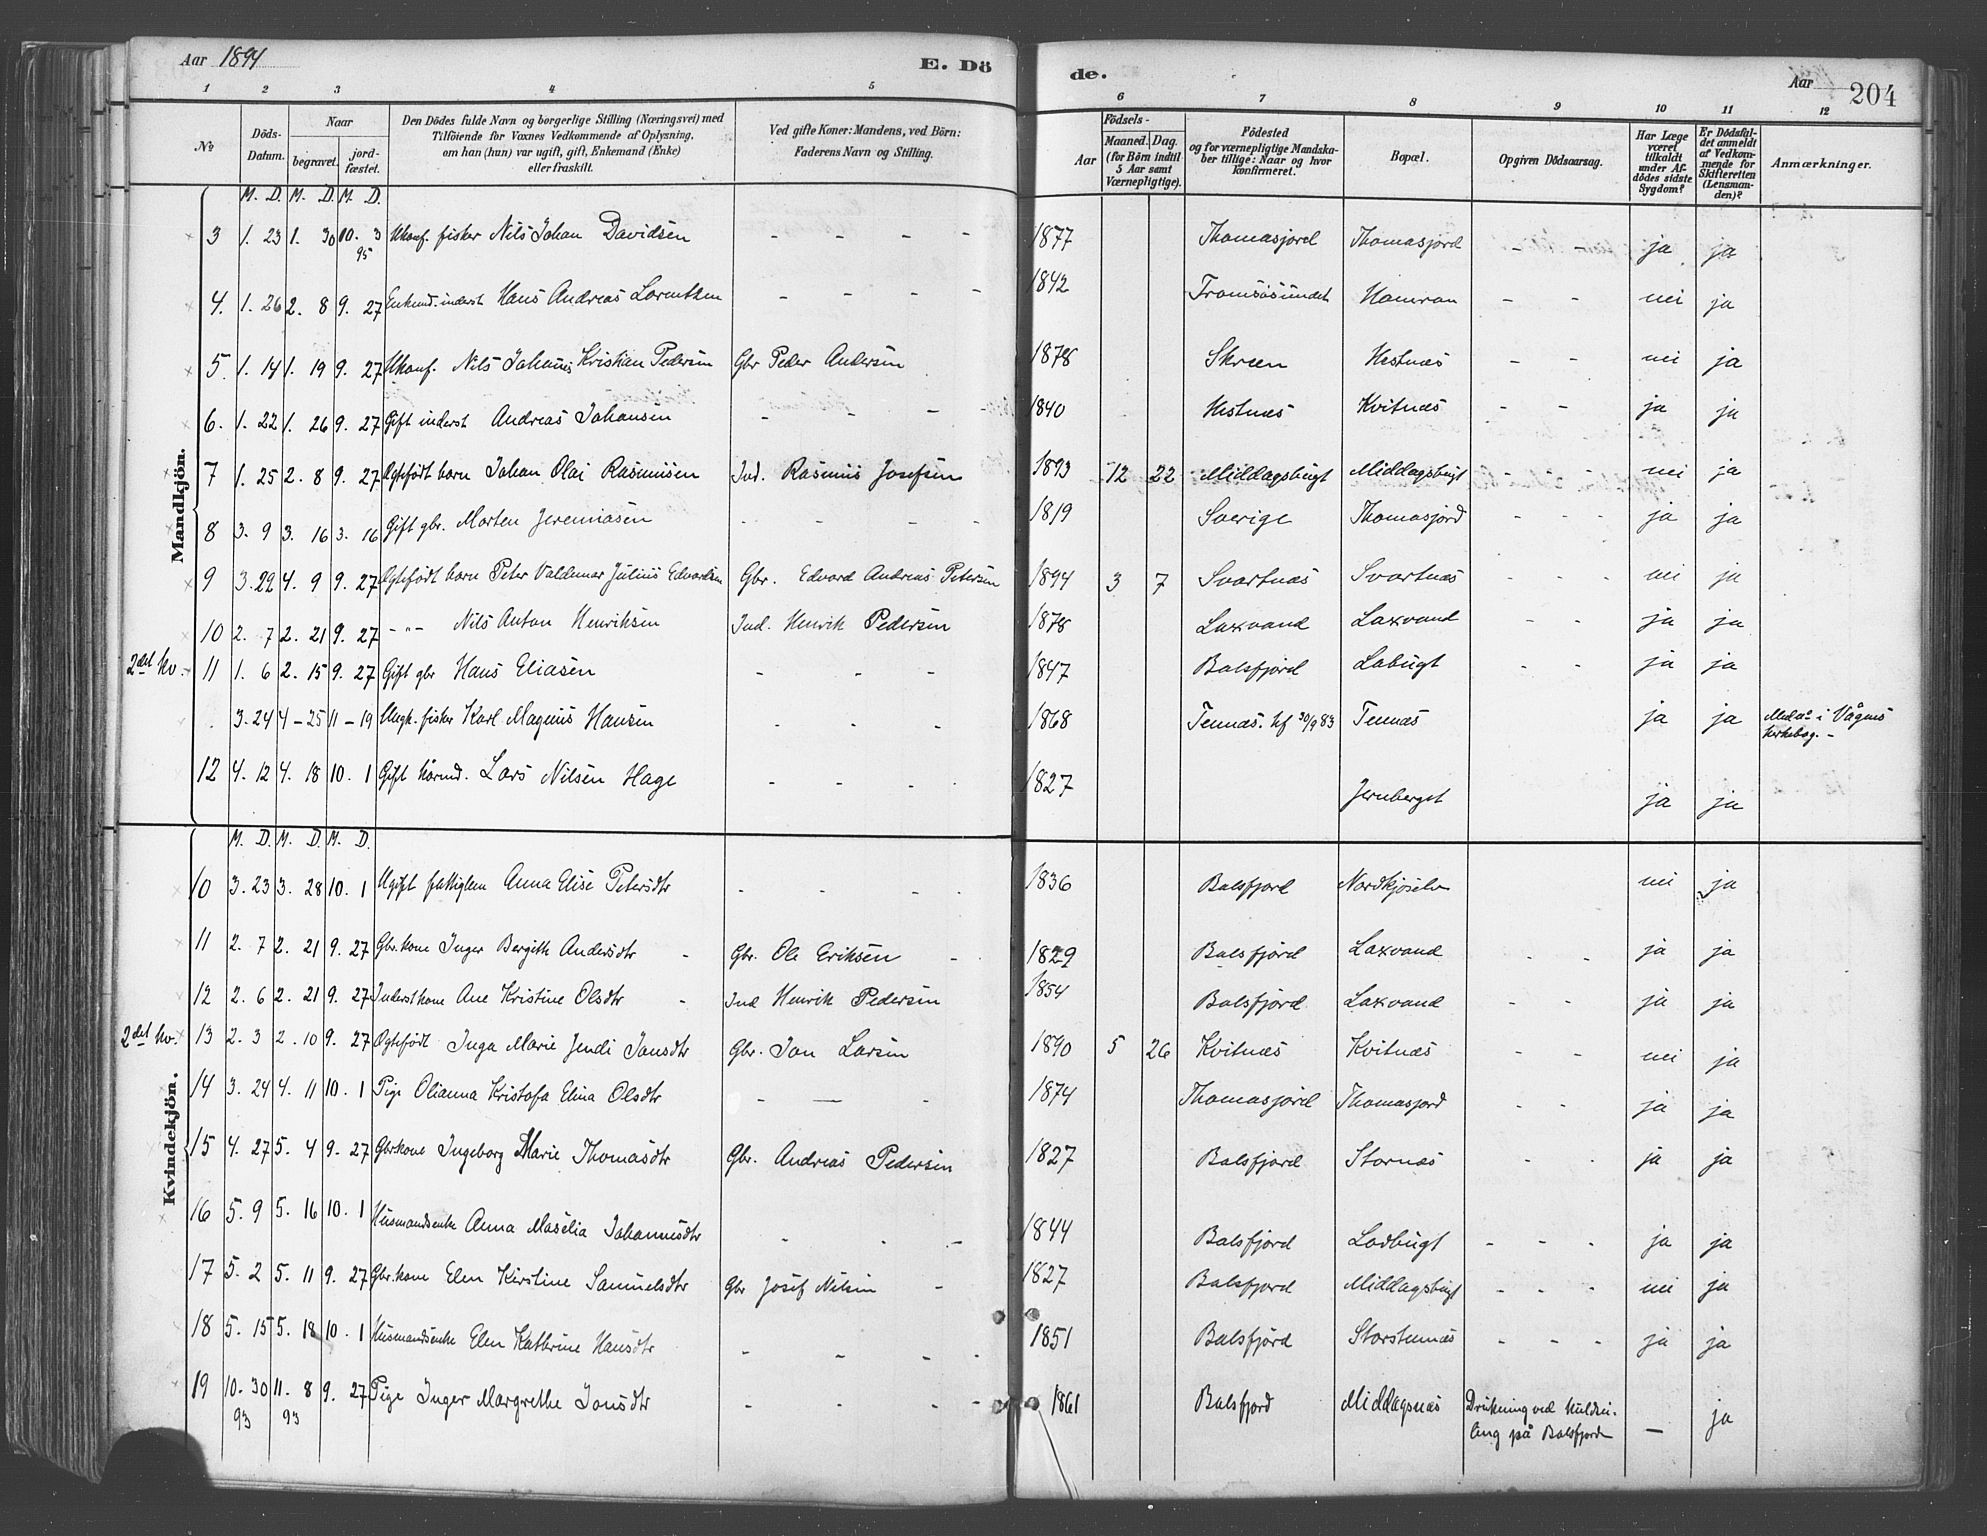 Aar 1894
E. Dö
de.
Aar
204
1 2 3 4 5 6 7 8 9 10 11 12
№
Döds-
Datum.
Naar
begravet.
jord-
fæstet.
Den Dödes fulde Navn og borgerlige Stilling (Næringsvei) med
Tilföiende for Voxnes Vedkommende af Oplysning,
om han (hun) var ugift, gift, Enkemand (Enke)
eller fraskilt.
Ved gifte Koner: Mandens, ved Börn:
Faderens Navn og Stilling.
Födsels-
Aar
Maaned. Dag.
(for Börn indtil
5 Aar samt
Værnepligtige).
Födested
og for værnepligtige Mandska-
ber tillige: Naar og hvor
konfirmeret.
Bopæl.
Opgiven Dödsaarsag.
Har Læge
været
tilkaldt
under Af-
dödes sidste
Sygdom?
Er Dödsfal-
det anmeldt
af Vedkom-
mende for
Skifteretten
(Lensman-
den)?
Anmærkninger.
Mandkjön.
M. D. M. D. M. D.
3 1. 23 1. 30 10. 3 95 Ukonf. fisker Nils Johan Davidsen - - - - 1877 Thomasjord Thomasjord - - ja ja
4. 1. 26 2. 8 9. 27 Enkemd. inderst Hans Andreas Lorentzen - - - - 1842 Tromsösundet Hamran - - nei ja
5. 1. 14 1. 19 9. 27 Ukonf. Nils Johannes Kristian Pedersen Gbr Peder Andersen 1878 Skreen Hestnæs - - nei ja
6. 1. 22 1. 26 9. 27 Gift inderst Andreas Johansen - - - - 1840 Hestnæs Kvitnæs - - ja ja
7 1. 25 2. 8 9. 27 Ægtefödt barn Johan Olai Rasmussen Ind. Rasmus Josefsen 1893 12 22 Middagsbugt Middagsbugt - - nei ja
8 3. 9 3. 16 3. 16 Gift gbr. Morten Jeremiasen - - - - 1819 Sverige Thomasjord - - - ja ja
9 3. 29 4. 9 9. 27 Ægtefödt barn Peter Valdemar Julius Edvardsen Gbr. Edvard Andreas Petersen 1894 3 7 Svartnæs Svartnæs - - - nei ja
10 2. 7 2. 21 9. 27 -"- Nils Anton Henriksen Ind. Henrik Pedersen 1878 Laxvand Laxvand ja ja
2det hv. 11 1. 6 2. 15 9. 27 Gift gbr Hans Eliasen - - - 1847 Balsfjord Labugt - - ja ja
3. 24 4 - 25 11 - 19 Ungk. fisker Karl Magnus Hansen - - - 1868 Tennæs. kf 30/9 83 Tennæs ja ja
i Vågens
kirkebog. -
12 4. 12 4. 18 10. 1 Gift kårmd. Lars Nilsen Hage - - - 1827 Jernberget ja ja
Kvindekjön.
M. D. M. D. M. D.
10 3. 23 3. 28 10. 1 Ugift fattiglem Anna Elise Petersdtr - - - - 1836 Balsfjord Nordkjoselv nei ja
11 2. 7 2. 21 9. 27 Gbr.kone Inger Bergith Andersdtr - Gbr. Ole Eriksen - 1829 Balsfjord Laxvand - - ja ja
12 2. 6 2. 21 9. 27 Inderstkone Ane Kristine Olsdtr - Ind Henrik Pedersen 1854 Balsfjord Laxvand - - ja ja
2det hv. 13 2. 3 2. 10 9. 27 Ægtefödt Inga Marie Jendi Jonsdtr Gbr. Jon Larsen 1890 5 26 Kvitnæs Kvitnæs - - nei ja
14 3. 24 4. 11 10. 1 Pige Olianna Kristofa Elina Olsdtr - - - 1874 Thomasjord Thomasjord - - ja ja
15 4. 27 5. 4 9. 27 Gbrkone Ingeborg Marie Thomasdtr Gbr. Andreas Pedersen 1827 Balsfjord Stornæs - - ja ja
16 5. 9 5. 16 10. 1 Husmandsenke Anna Maselia Johannesdtr - - - 1844 Balsfjord Ladbugt - - - ja ja
17 5. 2 5. 11 9. 27 Gbr.kone Elen Kirstine Samuelsdtr Gbr Josef Nilsen - 1827 Balsfjord Middagsbugt - - - nei ja
18 5. 15 5. 18 10. 1 Husmandsenke Elen Kathrine Hansdtr - - - - 1851 Balsfjord Storstennæs - - - ja ja
19 10. 30 93 11. 8 93 9. 27 Pige Inger Margrethe Jonsdtr - - - - 1861 Balsfjord Middagsnæs Drukning ved kuldsei-
ling på Balsfjorden — ja